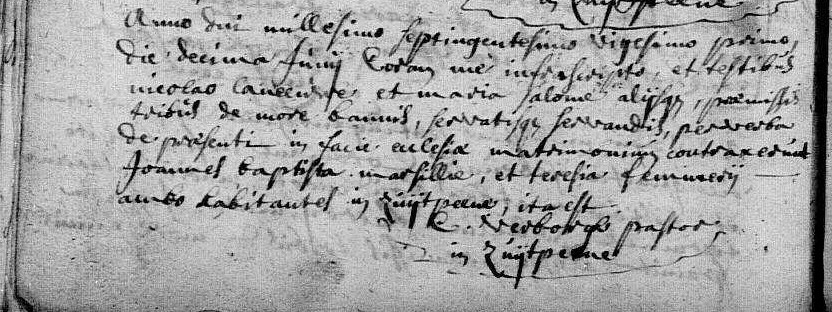 in Zuijtpeene
Anno dni millesimo septingentesimo vigesimo primo,
die decima Junij Coram me infrascripto, et testibus
nicolao et maria salome alijsqz, præmissis
tribus de more bannis, servatisqz servandis, per verba
de præsenti in facie eclesiæ matrimonium contraxerunt
Joannes baptista marsillie, et teresia
ambo habitantes in Zuijtpeene, ita est
C. verborgh pastor,
in Zuijtpeene